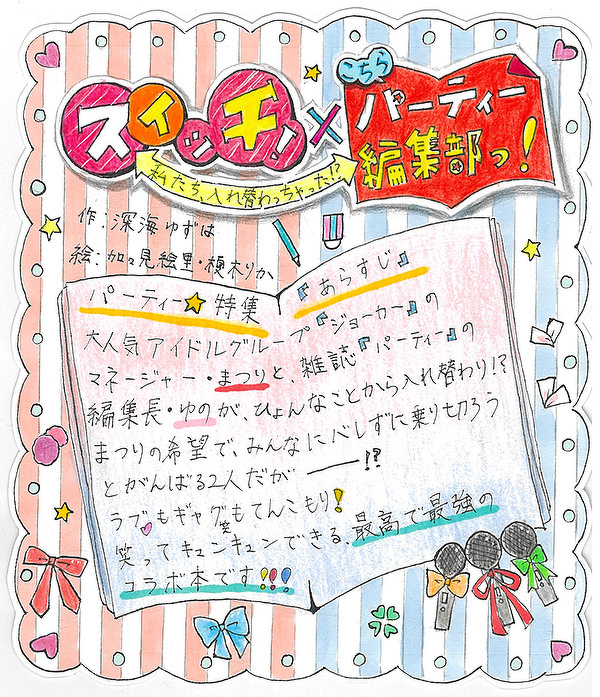 スイッチ!×
こちら
パーティー
編集部っ!
私たち、入れ替わっちゃった!?
作:深海ゆずは
絵:加々見絵里・榎木りか
パーティー★特集
『あらすじ』
大人気アイドルグループ『ジョーカー』の
マネージャー・まつりと、雑誌『パーティー』の
編集長・ゆのが、ひょんなことから入れ替わり!?
まつりの希望で、みんなにバレずに乗り切ろう
とがんばる2人だが――!?
ラブ♥もギャグ笑もてんこもり!
笑ってキュンキュンできる、最高で最強の
コラボ本です!!!